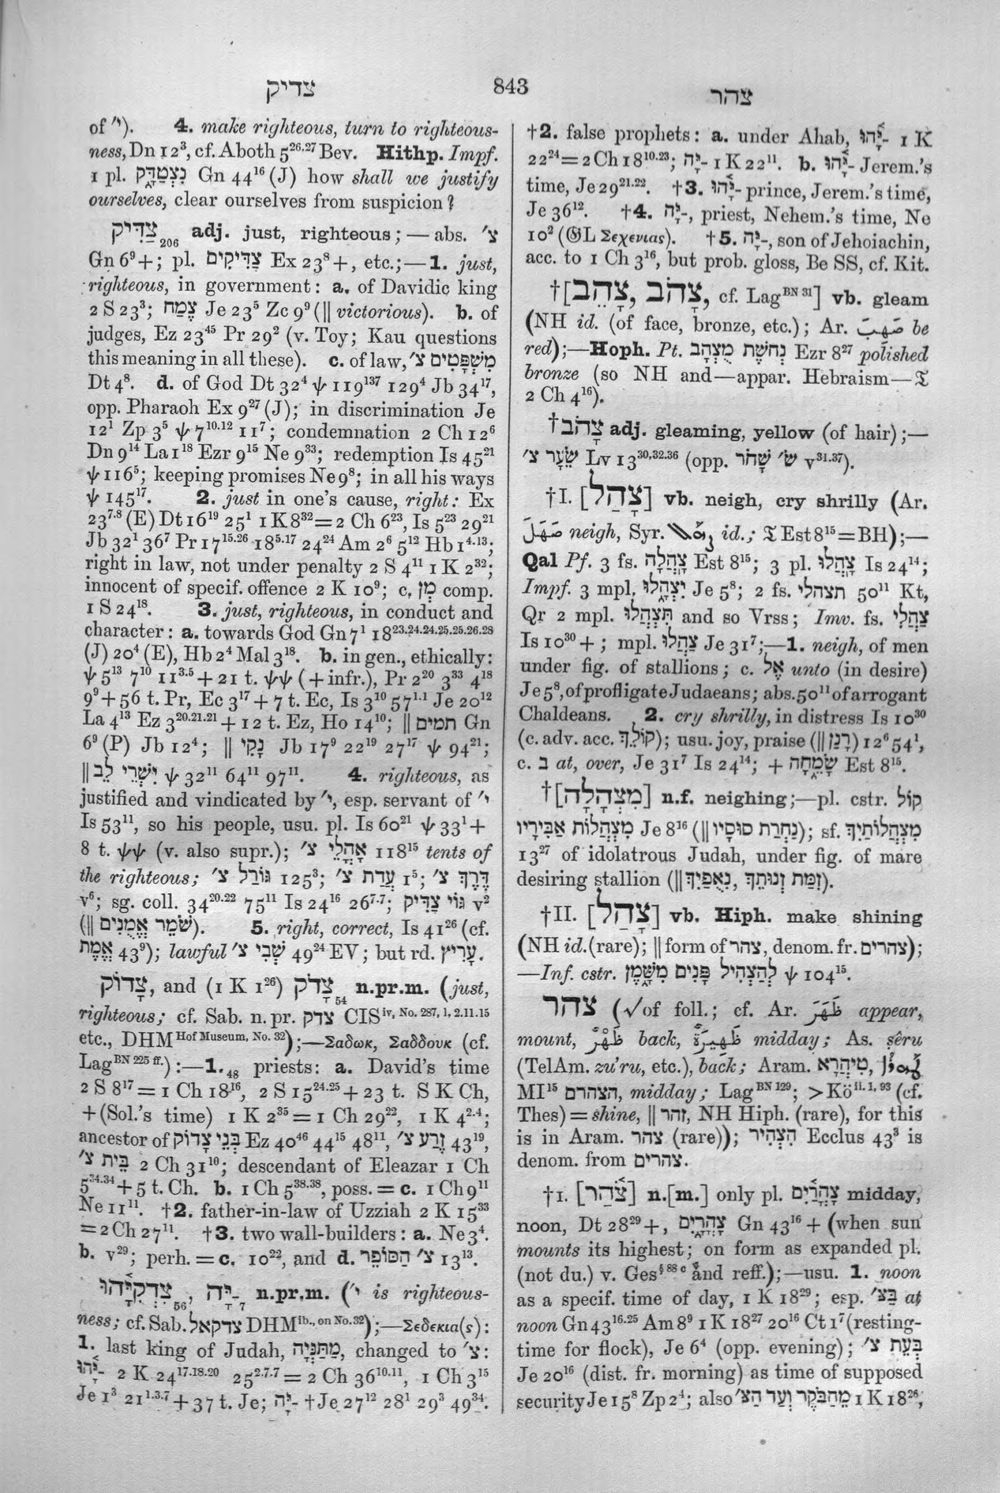 צדיק
843
צהר
of ׳י). 4. make righteous, turn to righteous-
ness, Dn 12³, cf. Aboth 5²⁶·²⁷ Bev. Hithp. Impf.
1 pl. נִצְטַדָּק Gn 44¹⁶ (J) how shall we justify
ourselves, clear ourselves from suspicion?
צַדִּיק₂₀₆ adj. just, righteous;—abs. צ׳
Gn 6⁹+; pl. צַדִּיקִים Ex 23⁸+, etc.;—1. just,
righteous, in government: a. of Davidic king
2 S 23³; צֶמַח Je 23⁵ Zc 9⁹ (|| victorious). b. of
judges, Ez 23⁴⁵ Pr 29² (v. Toy; Kau questions
this meaning in all these). c. of law, מִשְׁפָּטִים צ׳
Dt 4⁸. d. of God Dt 32⁴ ψ 119¹³⁷ 129⁴ Jb 34¹⁷,
opp. Pharaoh Ex 9²⁷ (J); in discrimination Je
12¹ Zp 3⁵ ψ 7¹⁰·¹² 11⁷; condemnation 2 Ch 12⁶
Dn 9¹⁴ La 1¹⁸ Ezr 9¹⁵ Ne 9³³; redemption Is 45²¹
ψ 116⁵; keeping promises Ne 9⁸; in all his ways
ψ 145¹⁷. 2. just in one's cause, right: Ex
23⁷·⁸ (E) Dt 16¹⁹ 25¹ 1 K 8³²=2 Ch 6²³, Is 5²³ 29²¹
Jb 32¹ 36⁷ Pr 17¹⁵·²⁶ 18⁵·¹⁷ 24²⁴ Am 2⁶ 5¹² Hb 1⁴·¹³;
right in law, not under penalty 2 S 4¹¹ 1 K 2³²;
innocent of specif. offence 2 K 10⁹; c. מִן comp.
1 S 24¹⁸. 3. just, righteous, in conduct and
character: a. towards God Gn 7¹ 18²³·²⁴·²⁴·²⁵·²⁵·²⁶·²⁸
(J) 20⁴ (E), Hb 2⁴ Mal 3¹⁸. b. in gen., ethically:
ψ 5¹³ 7¹⁰ 11³·⁵+21 t. ψψ (+infr.), Pr 2²⁰ 3³³ 4¹⁸
9⁹+56 t. Pr, Ec 3¹⁷+7 t. Ec, Is 3¹⁰ 57¹·¹ Je 20¹²
La 4¹³ Ez 3²⁰·²¹·²¹+12 t. Ez, Ho 14¹⁰; || תמים Gn
6⁹ (P) Jb 12⁴; || נָקִי Jb 17⁹ 22¹⁹ 27¹⁷ ψ 94²¹;
|| יִשְׁרֵי לֵב ψ 32¹¹ 64¹¹ 97¹¹. 4. righteous, as
justified and vindicated by ׳י, esp. servant of ׳י
Is 53¹¹, so his people, usu. pl. Is 60²¹ ψ 33¹+
8 t. ψψ (v. also supr.); אָהֳלֵי צ׳ 118¹⁵ tents of
the righteous; גּוֹרַל צ׳ 125³; עֲדַת צ׳ 1⁵; דֶּרֶךְ צ׳
v⁶; sg. coll. 34²⁰·²² 75¹¹ Is 24¹⁶ 26⁷·⁷; גּוֹי צַדִּיק v²
(|| שֹׁמֵר אֱמֻנִים). 5. right, correct, Is 41²⁶ (cf.
אֱמֶת 43⁹); lawful שְׁבִי צ׳ 49²⁴ EV; but rd. עָרִיץ.
צָדוֹק, and (1 K 1²⁶) צָדֹק₅₄ n.pr.m. (just,
righteous; cf. Sab. n. pr. צדק CIS ⁱᵛ, ᴺᵒ· ²⁸⁷, ¹, ²·¹¹·¹⁵
etc., DHM Hof Museum, No. 32);—Σαδωκ, Σαδδουκ (cf.
Lag BN 225 ff.):—1.₄₈ priests: a. David's time
2 S 8¹⁷=1 Ch 18¹⁶, 2 S 15²⁴·²⁵+23 t. S K Ch,
+(Sol.'s time) 1 K 2³⁵=1 Ch 29²², 1 K 4²·⁴;
ancestor of בְּנֵי צָדוֹק Ez 40⁴⁶ 44¹⁵ 48¹¹, זֶרַע צ׳ 43¹⁹,
בֵּית צ׳ 2 Ch 31¹⁰; descendant of Eleazar 1 Ch
5³⁴·³⁴+5 t. Ch. b. 1 Ch 5³⁸·³⁸, poss. = c. 1 Ch 9¹¹
Ne 11¹¹. †2. father-in-law of Uzziah 2 K 15³³
=2 Ch 27¹¹. †3. two wall-builders: a. Ne 3⁴.
b. v²⁹; perh. = c. 10²², and d. הַסּוֹפֵר צ׳ 13¹³.
צִדְקִיָּ֫הוּ₅₆, -יָּה₇ n.pr.m. (׳י is righteous-
ness; cf. Sab. צדקאל DHM Ib., on No. 32);—Σεδεκια(ς):
1. last king of Judah, מַתַּנְיָה, changed to צ׳:
-יָּ֫הוּ 2 K 24¹⁷·¹⁸·²⁰ 25²·⁷·⁷=2 Ch 36¹⁰·¹¹, 1 Ch 3¹⁵
Je 1³ 21¹·³·⁷+37 t. Je; -יָּה †Je 27¹² 28¹ 29³ 49³⁴.
†2. false prophets: a. under Ahab, -יָּ֫הוּ 1 K
22²⁴=2 Ch 18¹⁰·²³; -יָּה 1 K 22¹¹. b. -יָּ֫הוּ Jerem.'s
time, Je 29²¹·²². †3. -יָּ֫הוּ prince, Jerem.'s time,
Je 36¹². †4. -יָּה, priest, Nehem.'s time, Ne
10² (𝔊L Σεχενιας). †5. -יָּה, son of Jehoiachin,
acc. to 1 Ch 3¹⁶, but prob. gloss, Be SS, cf. Kit.
†[צָהֵב, צָהֹב, cf. Lag BN 31] vb. gleam
(NH id. (of face, bronze, etc.); Ar. صَهِبَ be
red);—Hoph. Pt. נְחשֶׁת מֻצְהָב Ezr 8²⁷ polished
bronze (so NH and—appar. Hebraism—𝔗
2 Ch 4¹⁶).
†צָהֹב adj. gleaming, yellow (of hair);—
שֵׂעָר צ׳ Lv 13³⁰·³²·³⁶ (opp. שׂ׳ שָׁחֹר v³¹·³⁷).
†I. [צָהַל] vb. neigh, cry shrilly (Ar.
صَهَلَ neigh, Syr. ܨܗܠ id.; 𝔗 Est 8¹⁵=BH);—
Qal Pf. 3 fs. צָהֲלָה Est 8¹⁵; 3 pl. צָהֲלוּ Is 24¹⁴;
Impf. 3 mpl. יִצְהָלוּ Je 5⁸; 2 fs. תצהלי 50¹¹ Kt,
Qr 2 mpl. תִּצְהֲלוּ and so Vrss; Imv. fs. צַהֲלִי
Is 10³⁰+; mpl. צַהֲלוּ Je 31⁷;—1. neigh, of men
under fig. of stallions; c. אֶל unto (in desire)
Je 5⁸, of profligate Judaeans; abs. 50¹¹ of arrogant
Chaldeans. 2. cry shrilly, in distress Is 10³⁰
(c. adv. acc. קוֹלֵךְ); usu. joy, praise (|| רָנַן) 12⁶ 54¹,
c. בְּ at, over, Je 31⁷ Is 24¹⁴; + שָׂמֵחָה Est 8¹⁵.
†[מִצְהָלָה] n.f. neighing;—pl. cstr. קוֹל
מִצְהֲלוֹת אַבִּירָיו Je 8¹⁶ (|| נַחְרַת סוּסָיו); sf. מִצְהֲלוֹתַיִךְ
13²⁷ of idolatrous Judah, under fig. of mare
desiring stallion (|| זִמַּת זְנוּתֵךְ, נִאֻפַיִךְ).
†II. [צָהַל] vb. Hiph. make shining
(NH id. (rare); || form of צהר, denom. fr. צהרים);
—Inf. cstr. לְהַצְהִיל פָּנִים מִשָּׁמֶן ψ 104¹⁵.
צהר (√of foll.; cf. Ar. ظَهَرَ appear,
mount, ظَهْرٌ back, ظَهِيرَةٌ midday; As. ṣêru
(TelAm. zu'ru, etc.), back; Aram. טִיהֲרָא,
MI¹⁵ הצהרם, midday; Lag BN 129; >Kö ii. 1, 93 (cf.
Thes)=shine, || זהר, NH Hiph. (rare), for this
is in Aram. צהר (rare)); הִצְהִיר Ecclus 43³ is
denom. from צהרים.
†1. [צֹ֫הַר] n.[m.] only pl. צָהֳרַ֫יִם midday,
noon, Dt 28²⁹+, צָהֳרָיִם Gn 43¹⁶+(when sun
mounts its highest; on form as expanded pl.
(not du.) v. Ges §88c and reff.);—usu. 1. noon
as a specif. time of day, 1 K 18²⁹; esp. בַּצ׳ at
noon Gn 43¹⁶·²⁵ Am 8⁹ 1 K 18²⁷ 20¹⁶ Ct 1⁷ (resting-
time for flock), Je 6⁴ (opp. evening); בְּעֵת צ׳
Je 20¹⁶ (dist. fr. morning) as time of supposed
security Je 15⁸ Zp 2⁴; also מֵהַבֹּקֶר וְעַד הַצ׳ 1 K 18²⁶;